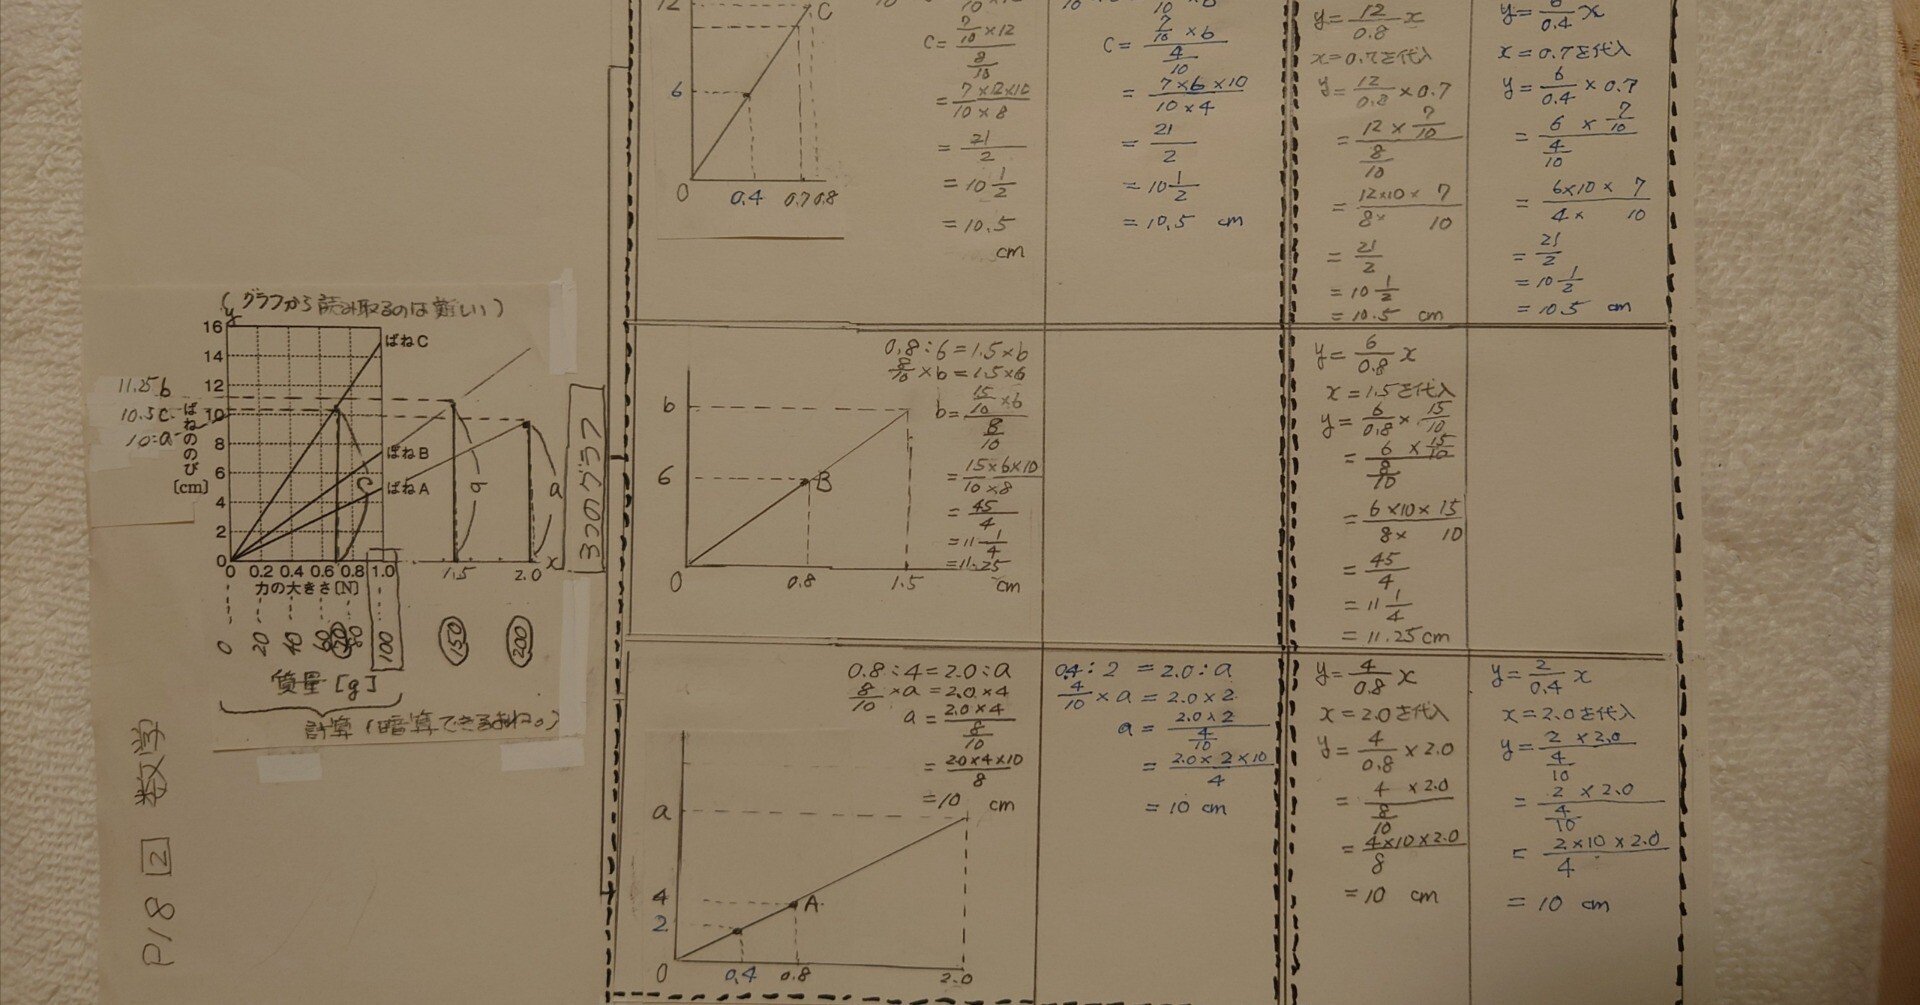 (グラフから読み取るのは難しい)
y
16
14
12
10
8
6
4
2
0
11.25 b
10.5 c
10=a
ばねののび
[cm]
ばねC
ばねB
ばねA
c
b
a
x
0 0.2 0.4 0.6 0.8 1.0 1.5 2.0
力の大きさ[N]
0 20 40 60 70 80 100 150 200
質量[g]
3つのグラフ
P18 2 数学
12
6
0
C
0.4 0.7 0.8
C= 7/10×12 / 8/10
= 7×12×10 / 10×8
= 21/2
= 10 1/2
= 10.5
cm
C= 7/10×6 / 4/10
= 7×6×10 / 10×4
= 21/2
= 10 1/2
= 10.5 cm
y= 12/0.8 x
x=0.7を代入
y= 12/0.8 ×0.7
= 12×7/10 / 8/10
= 12×10×7 / 8×10
= 21/2
= 10 1/2
= 10.5 cm
y= 6/0.4 x
x=0.7を代入
y= 6/0.4 ×0.7
= 6×7/10 / 4/10
= 6×10×7 / 4×10
= 21/2
= 10 1/2
= 10.5 cm
b
6
0
B
0.8 1.5
0.8÷6=1.5×b
8/10×b=1.5×6
b= 15/10×6 / 8/10
= 15×6×10 / 10×8
= 45/4
= 11 1/4
= 11.25
cm
y= 6/0.8 x
x=1.5を代入
y= 6/0.8 × 15/10
= 6×15/10 / 8/10
= 6×10×15 / 8×10
= 45/4
= 11 1/4
= 11.25cm
0.8:4=2.0:a
8/10×a=2.0×4
a= 2.0×4 / 8/10
= 2.0×4×10 / 8
=10 cm
a
4
2
0
A
0.4 0.8 2.0
0.4:2=2.0:a
4/10×a=2.0×2
a= 2.0×2 / 4/10
= 2.0×2×10 / 4
=10 cm
y= 4/0.8 x
x=2.0を代入
y= 4/0.8 ×2.0
= 4×2.0 / 8/10
= 4×10×2.0 / 8
=10 cm
y= 2/0.4 x
x=2.0を代入
y= 2×2.0 / 4/10
= 2×2.0 / 4/10
= 2×10×2.0 / 4
=10 cm